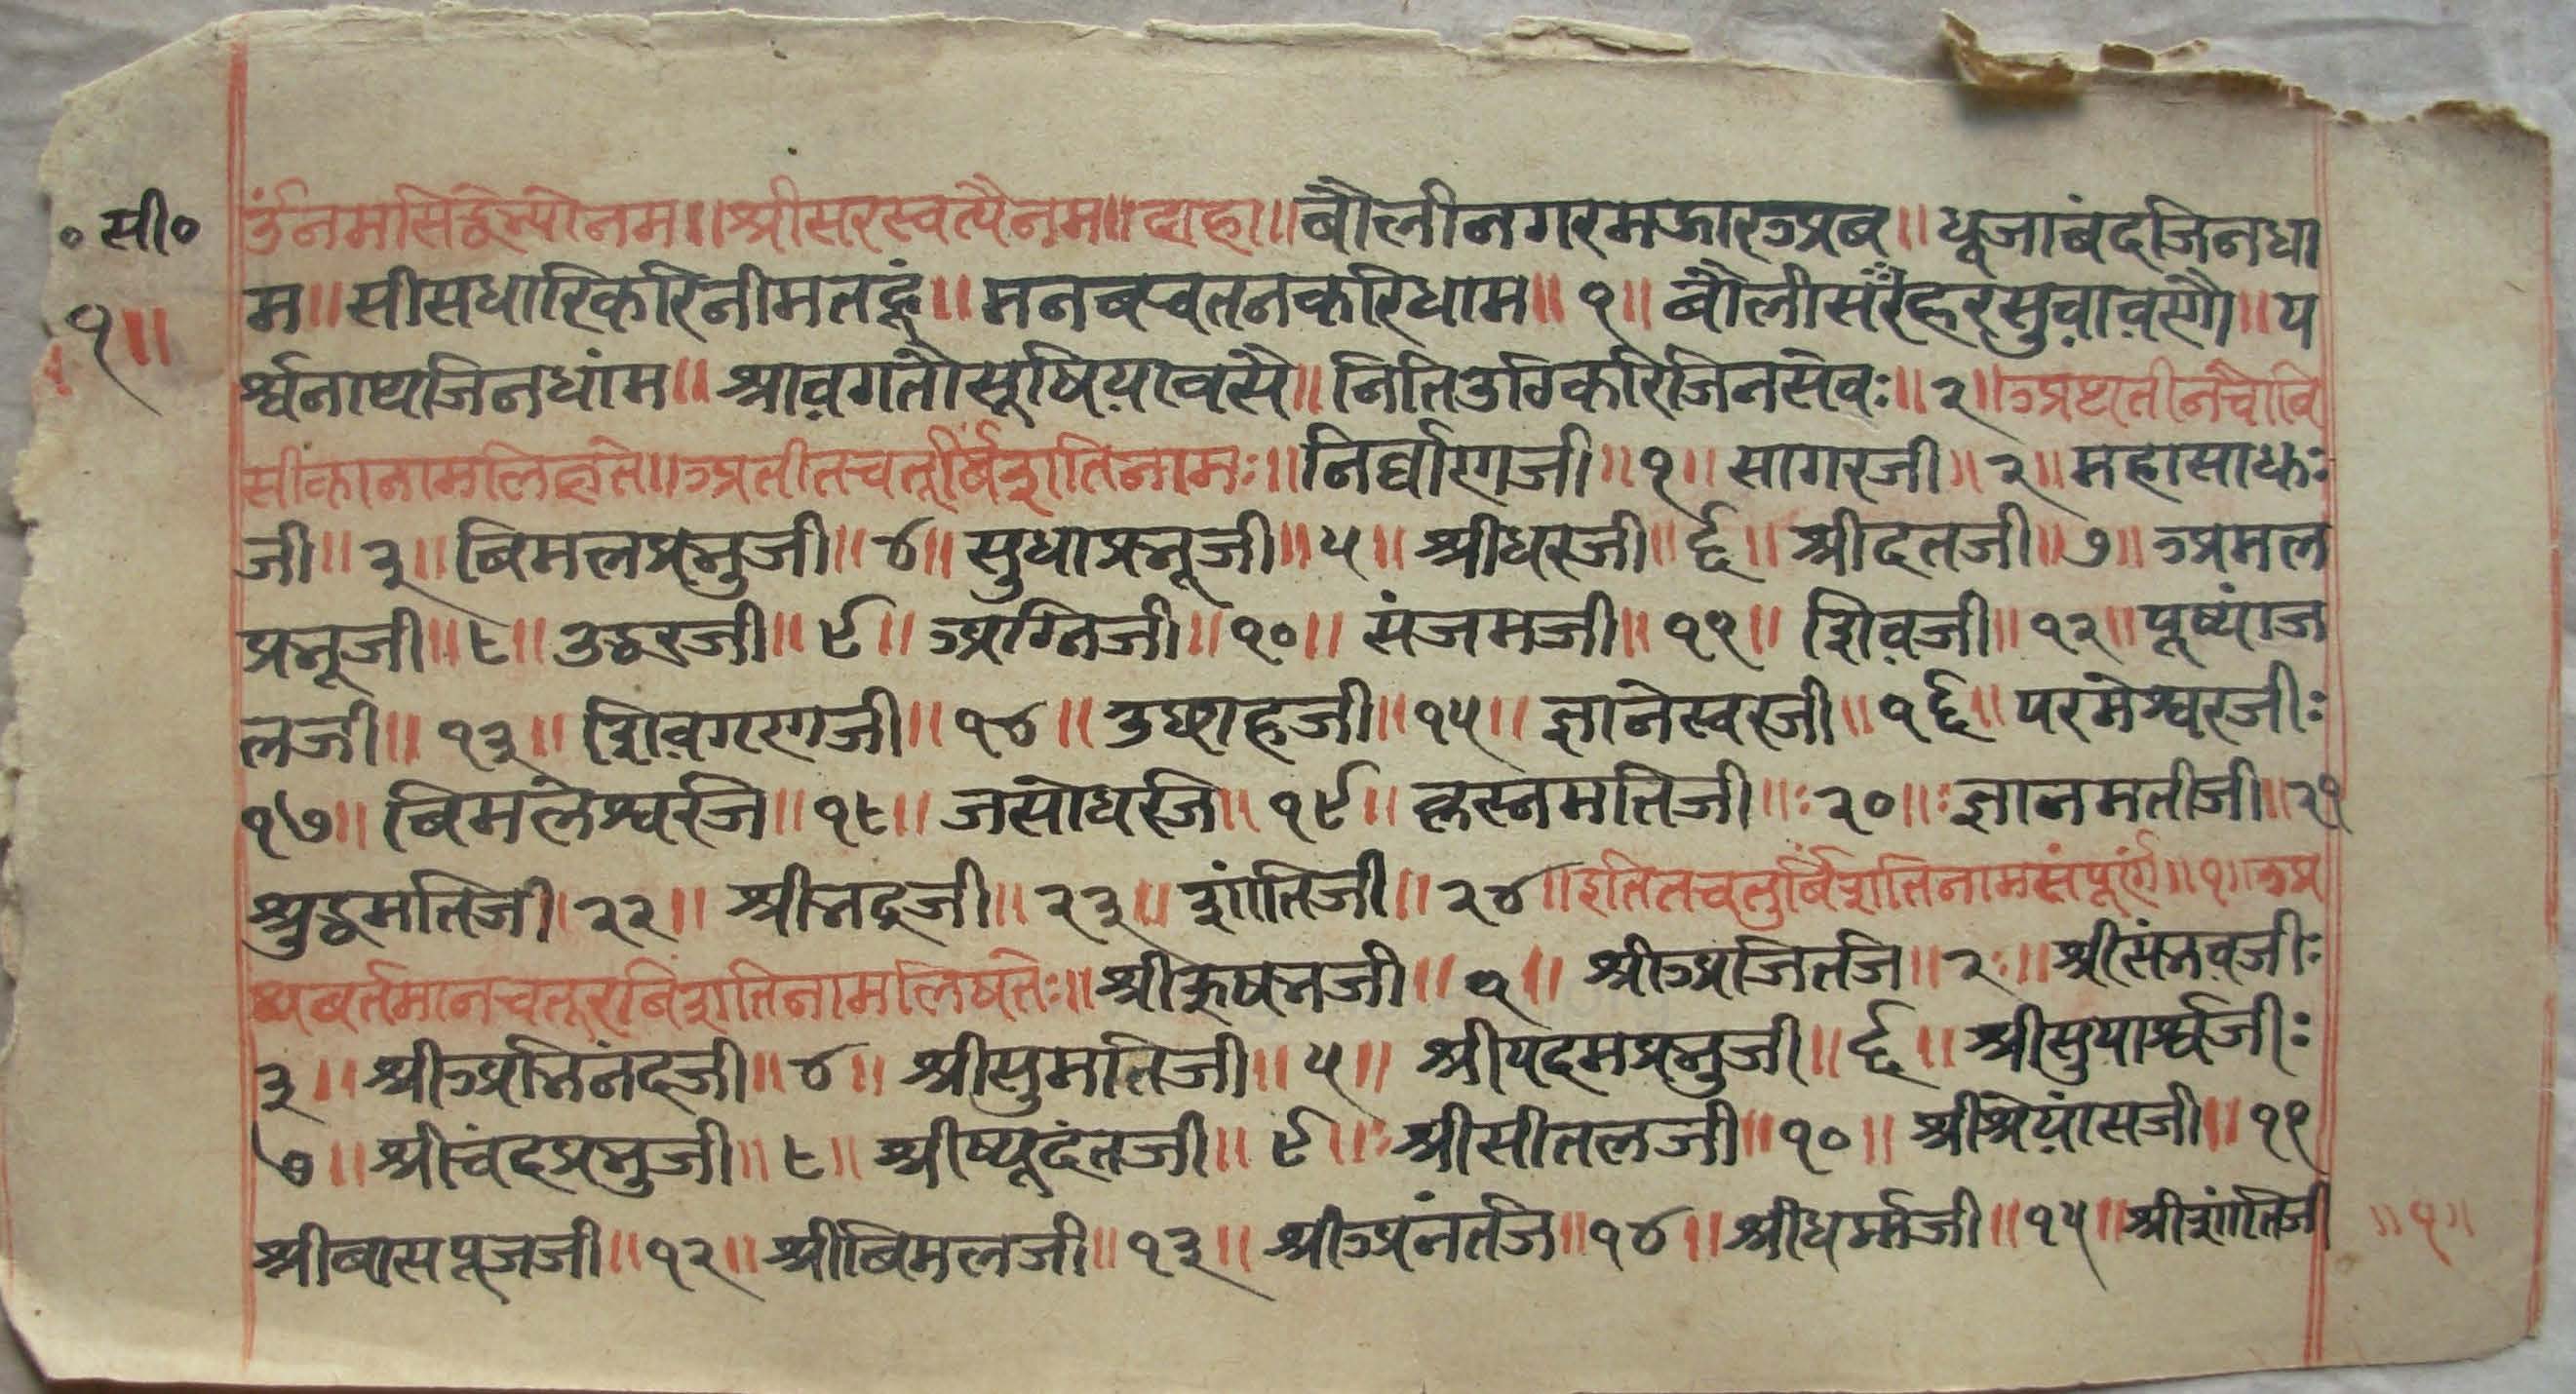 ॰सी॰ उँनमसिद्धेभ्योनमः॥श्रीसरस्वत्यैनमः॥दोहा॥बौलीनगरमझारअब॥पूजाबंदजिनधा
१॥ म॥सीसधारिकरिनीमतहूं॥मनबचतनकरिधाम॥१॥बौलीसैंहरसुवावस्यौ॥प
र्श्वनाथजिनधांम॥श्रावगतौसूषियावसै॥नितिउठिकरिजिनसेवः॥२॥अथतीनचौबि
सीकानामलिख्यते॥अतीतचतूर्बिंशतिनामः॥निर्वाणजी॥१॥सागरजी॥२॥महासाधः
जी॥३॥बिमलप्रभुजी॥४॥सुधाप्रभूजी॥५॥श्रीधरजी॥६॥श्रीदतजी॥७॥अमल
प्रभूजी॥८॥उद्धरजी॥९॥अग्निजी॥१०॥संजमजी॥११॥शिवजी॥१२॥पूष्पांज
लजी॥१३॥शिवगणजी॥१४॥उछाहजी॥१५॥ज्ञानेस्वरजी॥१६॥परमेश्वरजीः
१७॥बिमलेश्वरजि॥१८॥जसोधरजि॥१९॥कृस्नमतिजी॥ः२०॥ःज्ञानमतीजी॥२१
श्रुद्धमतिजी॥२२॥श्रीभद्रजी॥२३॥शांतिजी॥२४॥इतितचतुर्बिंशतिनामसंपूर्ण॥१॥अ
थबर्तमानचतूरबिंशतिनामलिषतेः॥श्रीऋषभजी॥१॥श्रीअजितजि॥२ः॥श्रीसंभवजीः
३॥श्रीअभिनंदजी॥४॥श्रीसुमतिजी॥५॥श्रीपदमप्रभुजी॥६॥श्रीसुपार्श्वजीः
७॥श्रीचंदप्रभुजी॥८॥श्रीष्पूदंतजी॥९॥ःश्रीसीतलजी॥१०॥श्रीश्रेयांसजी॥११
श्रीबासपूजजी॥१२॥श्रीबिमलजी॥१३॥श्रीअनंतजि॥१४॥श्रीधर्मजी॥१५॥श्रीशांतिजी ॥१॥